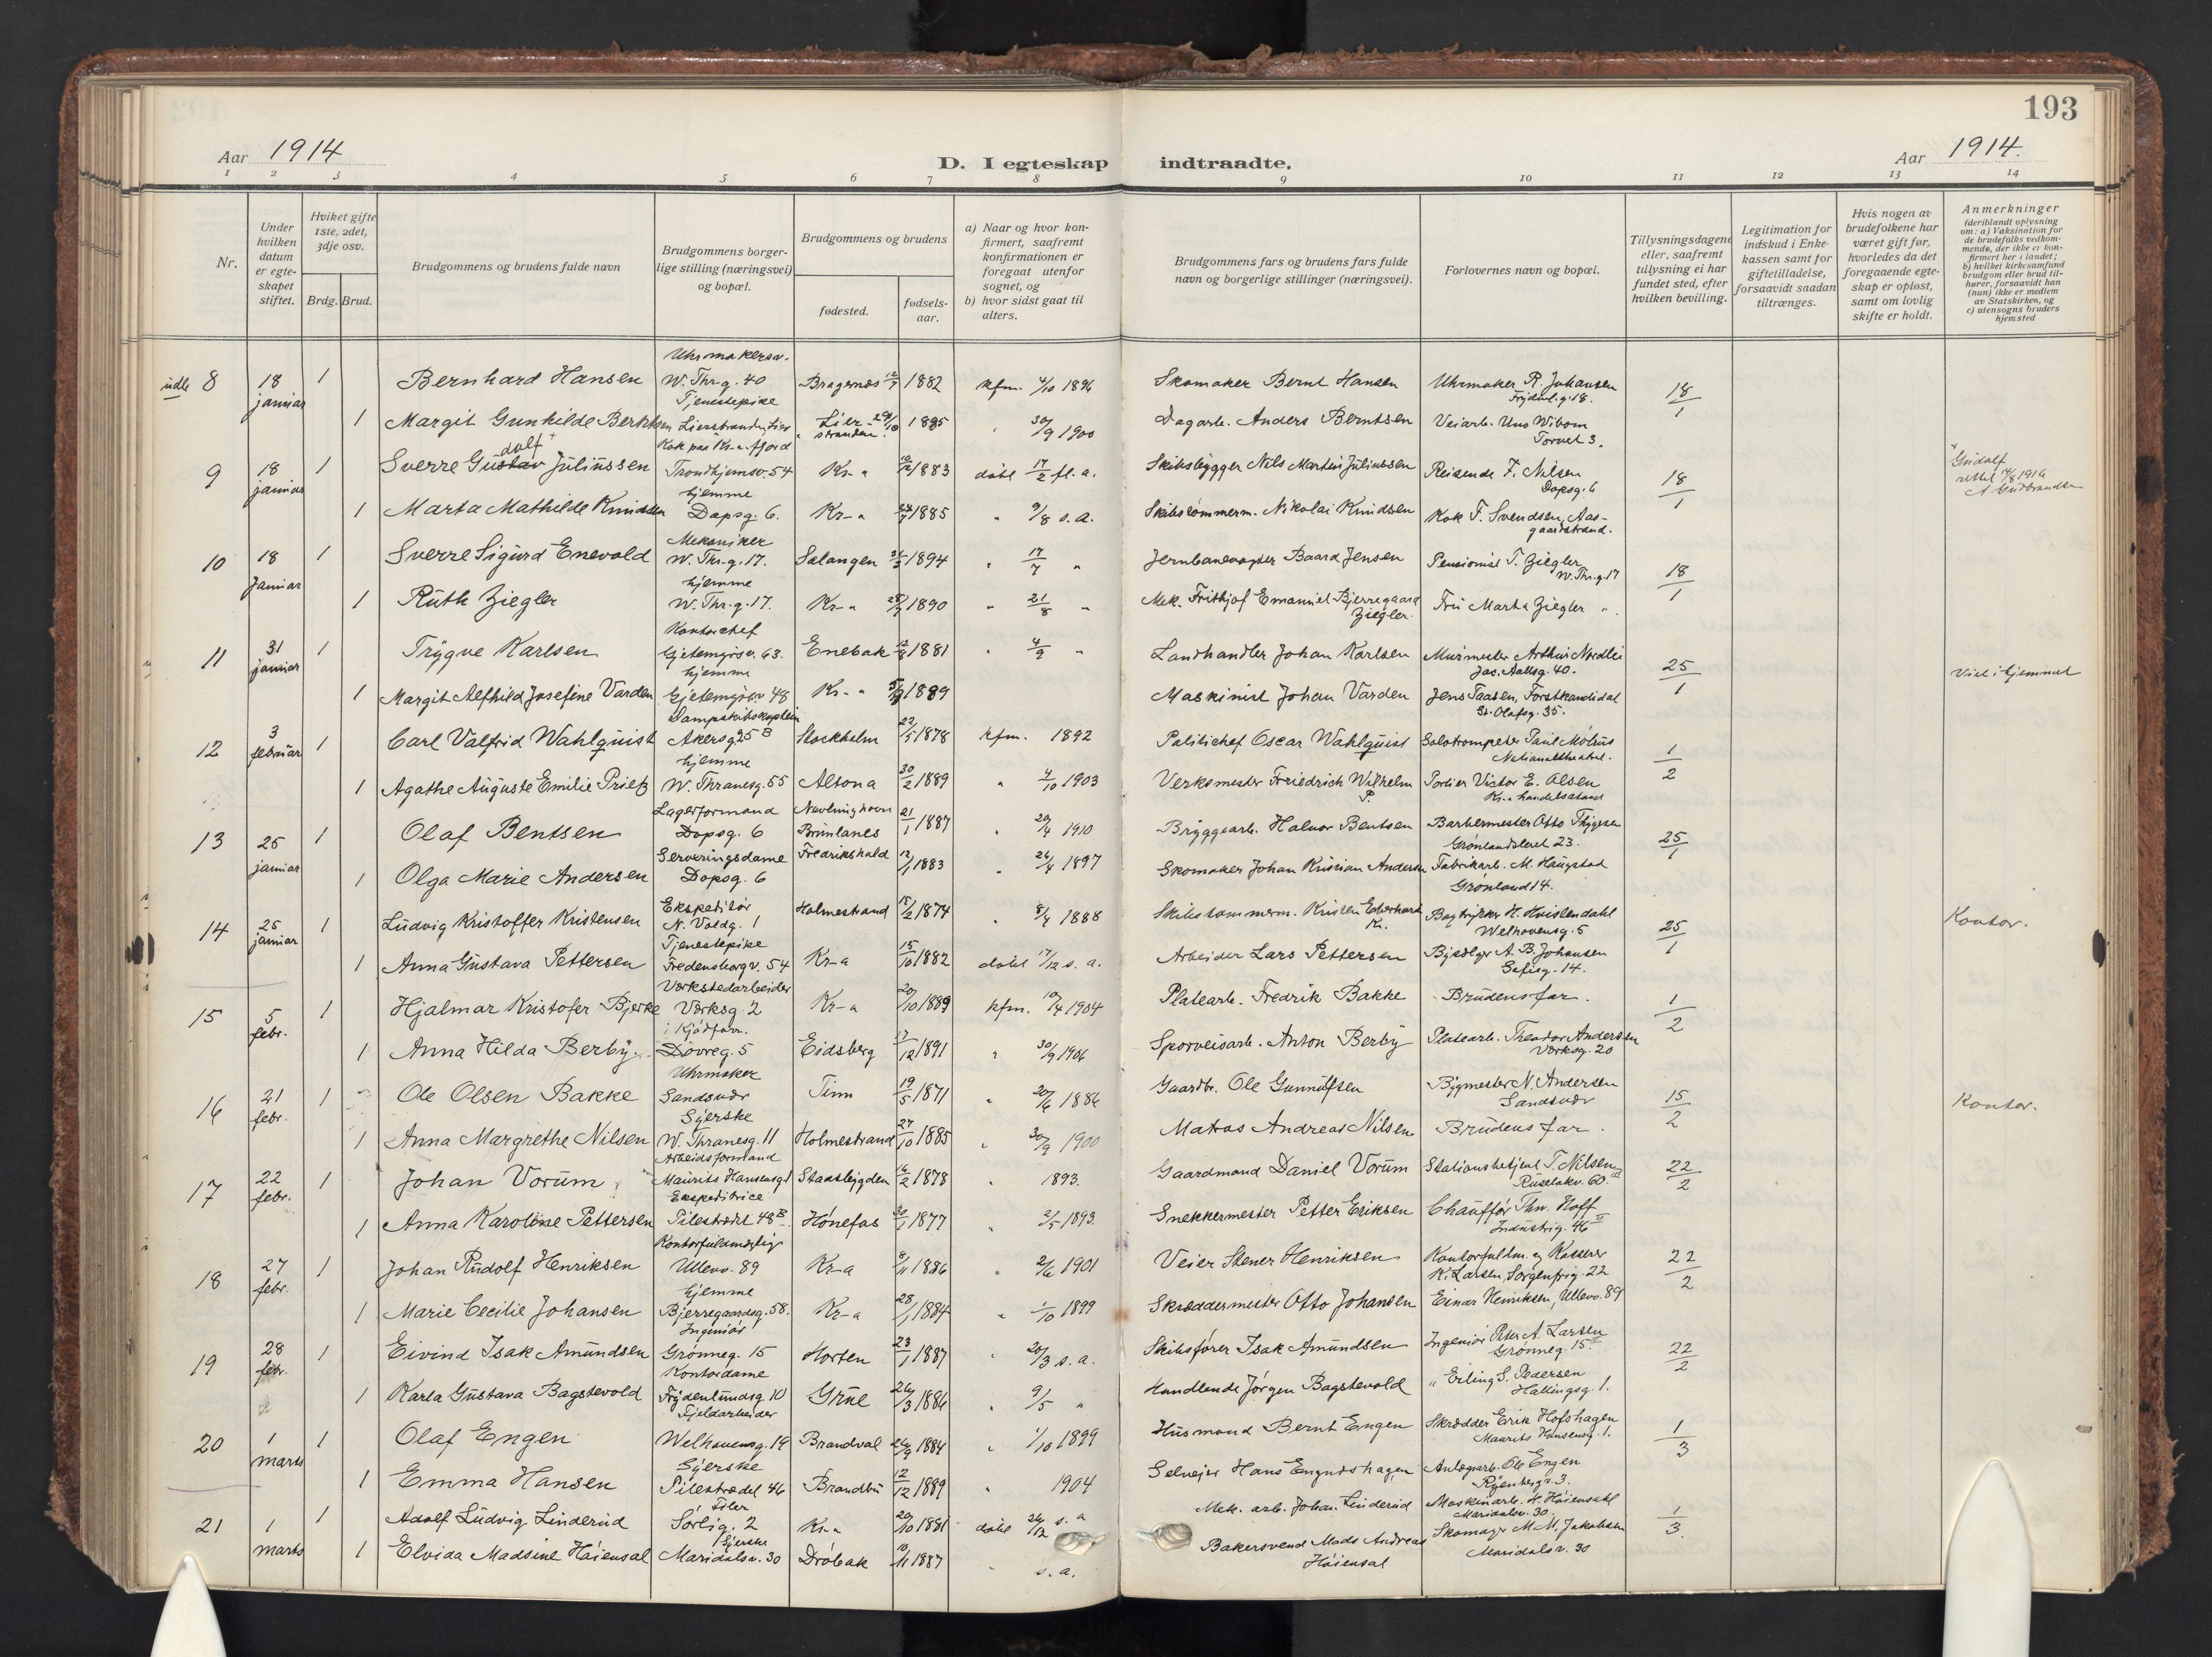 193
Aar 1914
D. I egteskap indtraadte.
Aar 1914.
1 2 3 4 5 6 7 8 9 10 11 12 13 14
Nr.
Under hvilken datum er egte-skapet stiftet.
Hviket gifte 1ste, 2det, 3dje osv.
Brdg. Brud.
Brudgommens og brudens fulde navn
Brudgommens borger-lige stilling (næringsvei) og bopæl.
Brudgommens og brudens
fødested.
fødsels-aar.
a) Naar og hvor kon-firmert, saafremt konfirmationen er foregaat utenfor sognet, og
b) hvor sidst gaat til alters.
Brudgommens fars og brudens fars fulde navn og borgerlige stillinger (næringsvei).
Forlovernes navn og bopæl.
Tillysningsdagene eller, saafremt tillysning ei har fundet sted, efter hvilken bevilling.
Legitimation for indskud i Enke-kassen samt for giftetilladelse, forsaavidt saadan tiltrænges.
Hvis nogen av brudefolkene har været gift før, hvorledes da det foregaaende egte-skap er opløst, samt om lovlig skifte er holdt.
Anmerkninger (deriblandt oplysning om: a) Vaksination for de brudefolks vedkom-mende, der ikke er kon-firmert her i landet; b) hvilket kirkesamfund brudgom eller brud til-hører, forsaavidt han (hun) ikke er medlem av Statskirken, og c) utensogns bruders hjemsted
Uhrmakersv.
8 18 januar 1 Bernhard Hansen W. Thr-g. 40 Bragernes 1882 kfm. 4/10 1896 Skomaker Bernt Hansen Uhrmaker R. Johansen 18/1
Tjenestepike
1 Margit Gunhilde Berntsen Lierstranden, Lier Lier-stranden 1885 30/9 1900 Dagarb. Anders Berntsen Veiarb. Uno Wibom Torvet 3.
Kok paa Kr.a fjord
9 18 januar 1 Sverre Gustav dolf Juliussen Trondhjemsv. 54 Kr-a 1883 døbt 17/2 fl. a. Skibsbygger Nils Martin Juliussen Reisende F. Nilsen Dopsg. 6 18/1 Gudolf rettet 1916 A Gudbrandsen
hjemme
1 Marta Mathilde Knudsen Dopsg. 6. Kr-a 1885 9/8 s. a. Skibstømmerm. Nikolai Knudsen Kok F. Svendsen, Aas-gaardstrand.
Mekaniker
10 18 Januar 1 Sverre Sigurd Enevold W. Thr-g. 17. Salangen 1894 17/7 " Jernbanevogter Baard Jensen Pensionist T. Ziegler W. Thr.g. 17 18/1
hjemme
1 Ruth Ziegler W. Thr-g. 17. Kr-a 1890 " 21/8 " Mek. Frithjof Emanuel Bjerregaard Ziegler. Fru Marta Ziegler "
Kontorchef
11 31 januar 1 Trygve Karlsen Gjetemyrsv. 63. Enebak 1881 " 4/9 " Landhandler Johan Karlsen Murmester Arthur Nordlie Jac. Aallsg. 40. 25/1 Viet i hjemmet
hjemme
1 Margit Alfhild Josefine Varden Gjetemyrsv. 48 Kr-a 1889 Maskinist Johan Varden Jens Taasen, Forstkandidat St. Olafsg. 35.
Dampskibskaptein
12 3 februar 1 Carl Valfrid Wahlquist Akersg. 25 B Stockholm 22/5 1878 kfm. 1892 Politichef Oscar Wahlquist Solotrompeter Paul Møbius Nationaltheatret. 1/2
hjemme
1 Agathe Auguste Emilie Prietz W. Thranesg. 55 Altona 30/2 1889 " 4/10 1903 Verksmester Friedrich Wilhelm P. Portier Victor E. Olsen Kr.a handelsstand
Lagerformand
13 25 januar 1 Olaf Bentsen Dopsg. 6 Nevlunghavn Brunlanes 21/1 1887 " 20/4 1910 Bryggearb. Halvor Bentsen Barbermester Otto Thygesen Grønlandsleret 23. 25/1
Serveringsdame
1 Olga Marie Andersen Dopsg. 6 Fredrikshald 12/1 1883 " 26/4 1897 Skomaker Johan Kristian Andersen Fabrikarb. M. Haugstad Grønland 14.
Ekspeditør
14 25 januar 1 Ludvig Kristoffer Kristensen N. Voldg. 1 Holmestrand 15/2 1874 " 8/4 1888 Skibstømmerm. Kristen Edverhard Kr. Bogtrykker H. Kristendahl Welhavensg. 5 25/1 Kontor.
Tjenestepike
1 Anna Gustava Pettersen Fredensborgv. 54 Kr-a 15/10 1882 døbt 17/12 s. a. Arbeider Lars Pettersen Bysælger A. B. Johansen Sofieg. 14.
Verkstedarbeider
15 5 febr. 1 Hjalmar Kristofer Bjerke Verksg. 2 Kr-a 20/10 1889 kfm. 10/4 1904 Platearb. Fredrik Bakke Brudens far. 1/2
i Kjødforr.
1 Anna Hilda Berby Dovreg. 5 Eidsberg 17/12 1891 " 30/9 1906 Sporveisarb. Anton Berby Platearb. Theodor Andersen Verksg. 20
Uhrmaker
16 21 febr. 1 Ole Olsen Bakke Sandsvær Tinn 19/5 1871 " 20/6 1886 Gaardbr. Ole Gunnulfsen Bygmester N. Andersen Sandsvær 15/2 Kontor.
Syerske
1 Anna Margrethe Nilsen W. Thranesg. 11 Holmestrand 27/10 1885 " 30/9 1900 Matros Andreas Nilsen Brudens far.
Arbeidsformand
17 22 febr. 1 Johan Vorum Maurits Hansensg 1 Stadsbygden 16/2 1878 1893. Gaardmand Daniel Vorum Stationsbetjent T. Nilsen Ruseløkv. 60 III 22/2
Ekspeditrice
1 Anna Karoline Pettersen Pilestrædet 48 B Hønefos 30/1 1877 " 2/5 1893. Snekkermester Petter Eriksen Chauffør Thv. Hoff Industrig. 46 II
Kontorfuldmægtig
18 27 febr. 1 Johan Rudolf Henriksen Ullevv. 89 Kr-a 8/11 1886 " 2/6 1901 Veier Stener Henriksen Kontorfuldm. og Kasserer K. Larsen, Sorgenfrig. 22 22/2
hjemme
1 Marie Cecilie Johansen Bjerregaardsg. 58. Kr-a 28/1 1884 " 1/10 1899 Skræddermester Otto Johansen Einar Henriksen, Ullevv. 89
Ingeniør
19 28 febr. 1 Eivind Isak Amundsen Grønneg. 15 Horten 23/1 1887 " 20/3 s. a. Skibsfører Isak Amundsen Ingeniør Peter A. Larsen Grønneg. 15 II 22/2
Kontordame
1 Karla Gustava Bagstevold Frydenlundsg. 10 Grue 26/3 1886 " 9/5 " Handlende Jørgen Bagstevold " Erling S. Pedersen Hallingsg. 1.
Fjeldarbeider
20 1 marts 1 Olaf Engen Welhavensg. 19 Brandval 26/9 1884 " 1/10 1899 Husmand Bernt Engen Skrædder Erik Hofshagen Maurits Hansensg. 1. 1/3
Syerske
1 Emma Hansen Pilestrædet 46 Brandbu 12/12 1889 " 1904 Selveier Hans Engnæshagen Anlægsarb. Ole Engen Ryenbergv. 3.
Filer
21 1 marts 1 Adolf Ludvig Linderud Sørlig. 2 Kr-a 20/10 1881 døbt 26/12 s. a Mek. arb. Johan Linderud Maskinarb. H. Høiensahl Maridalsv. 30. 1/3.
Syerske
1 Elvida Madsine Høiensal Maridalsv. 30 Drøbak 10/11 1887 " s. a. Bakersvend Mads Andreas Høiensal Skomager M. M. Jakobsen Maridalsv. 30